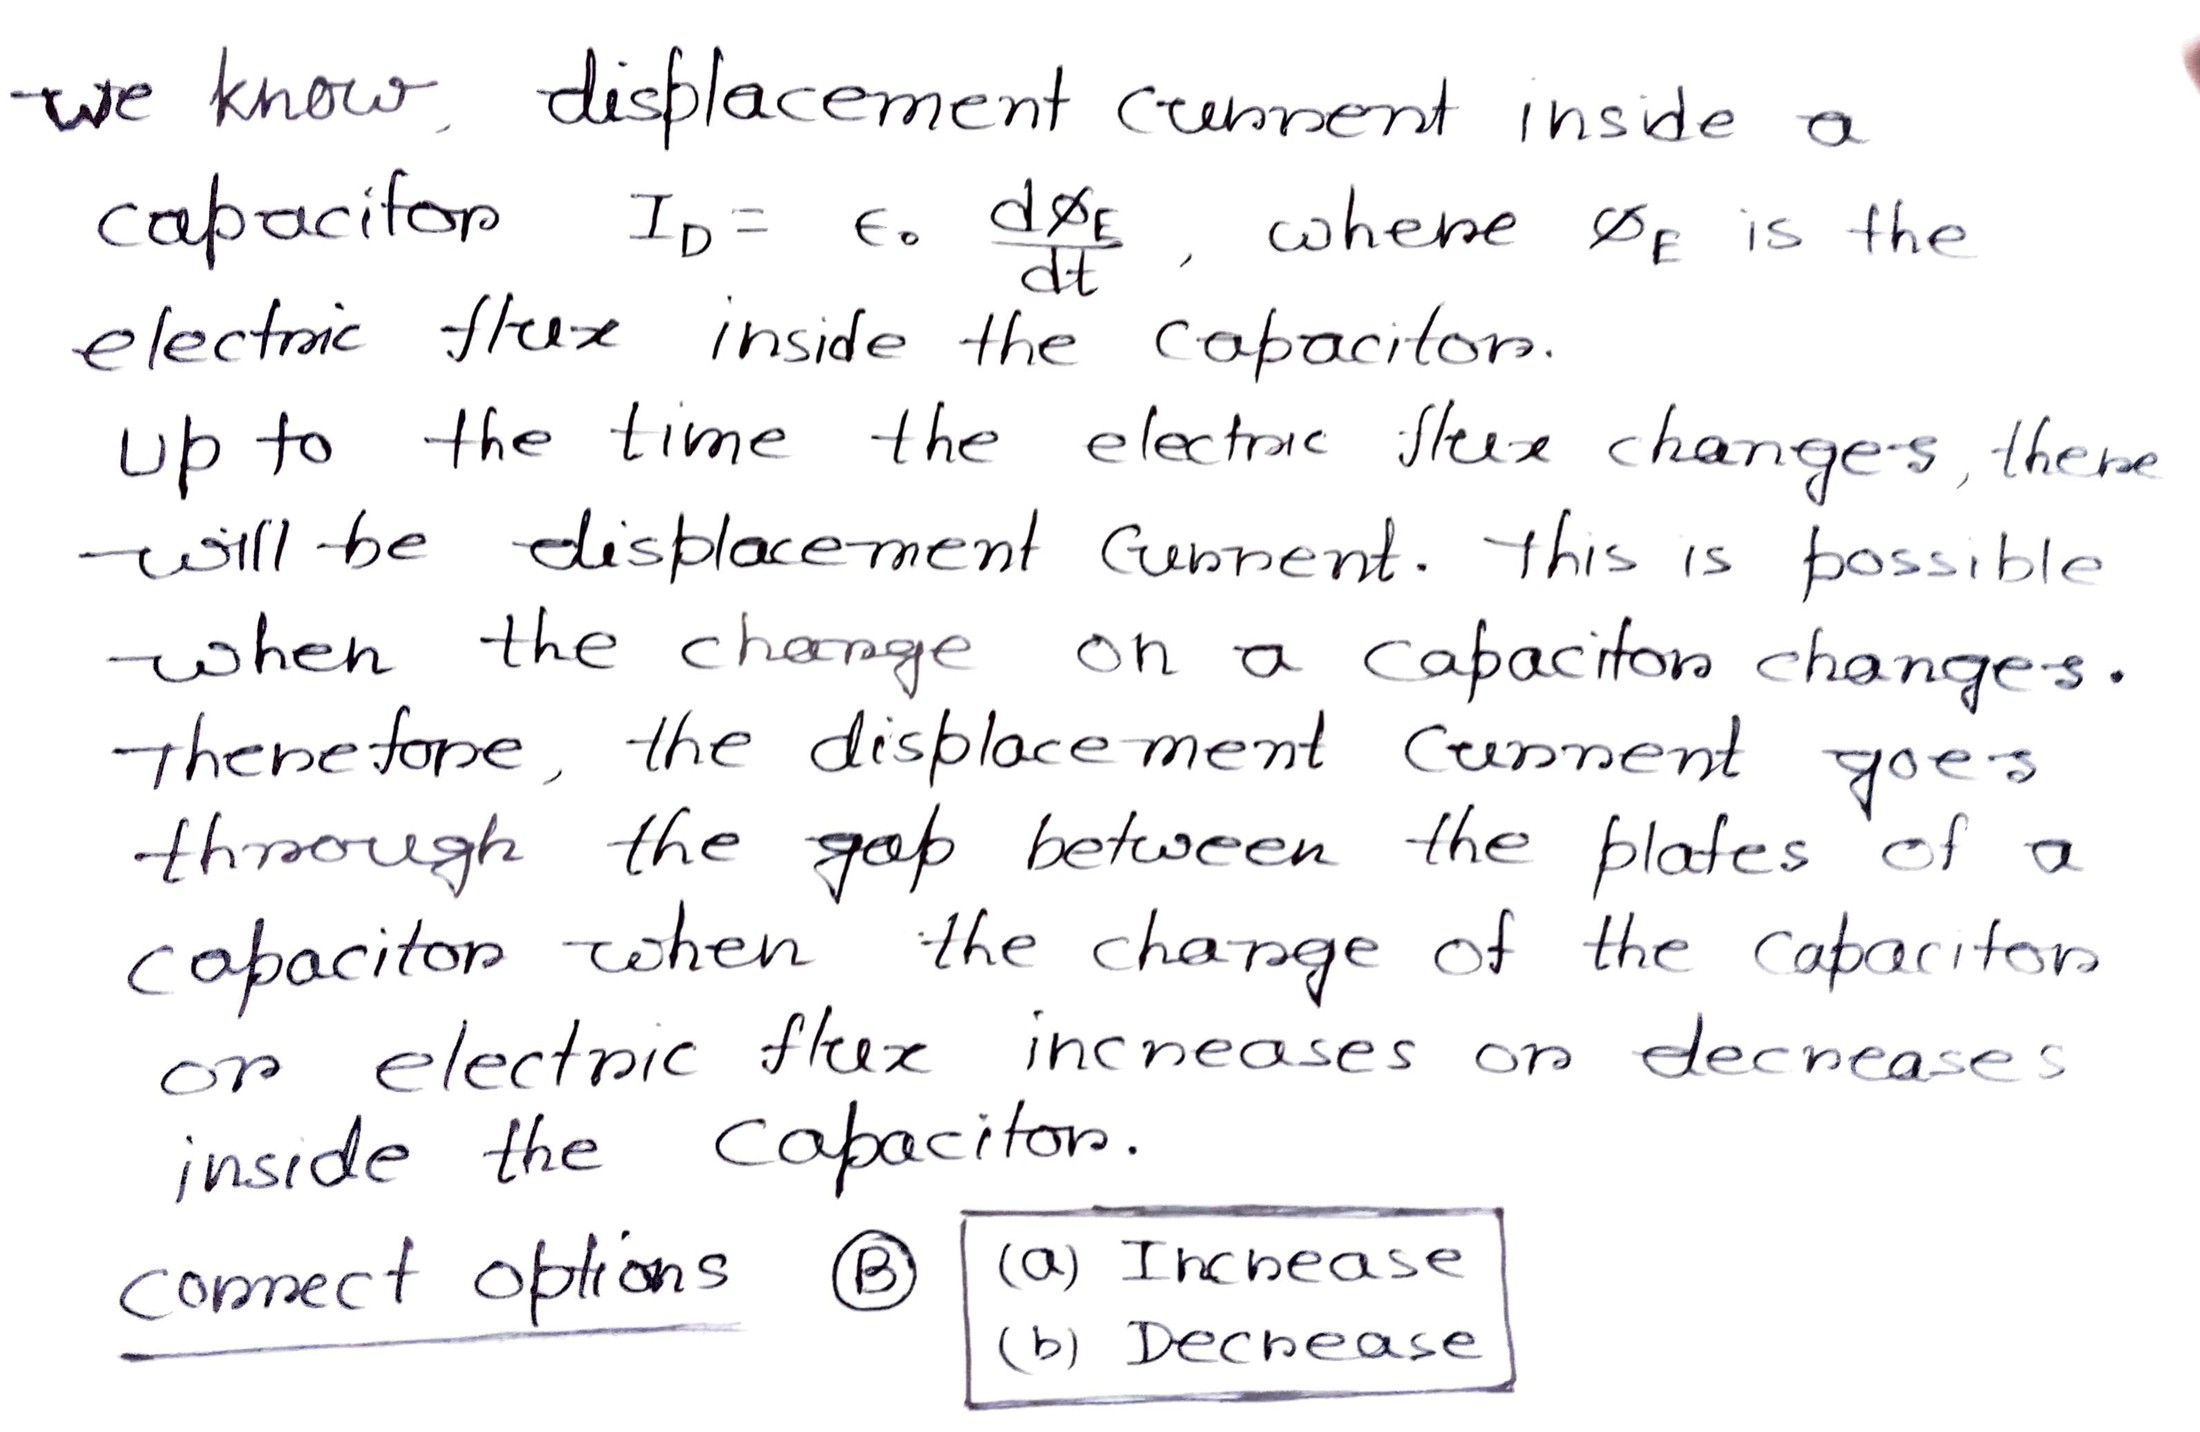 we know, displacement current inside a
capacitor I_D = ϵ₀ dØ_E/dt, where Ø_E is the
electric flux inside the capacitor.
Up to the time the electric flux changes, there
will be displacement current. This is possible
when the charge on a capacitor changes.
Therefore, the displacement current goes
through the gap between the plates of a
capacitor when the charge of the capacitor
or electric flux increases or decreases
inside the capacitor.
correct options Ⓑ (a) Increase
(b) Decrease